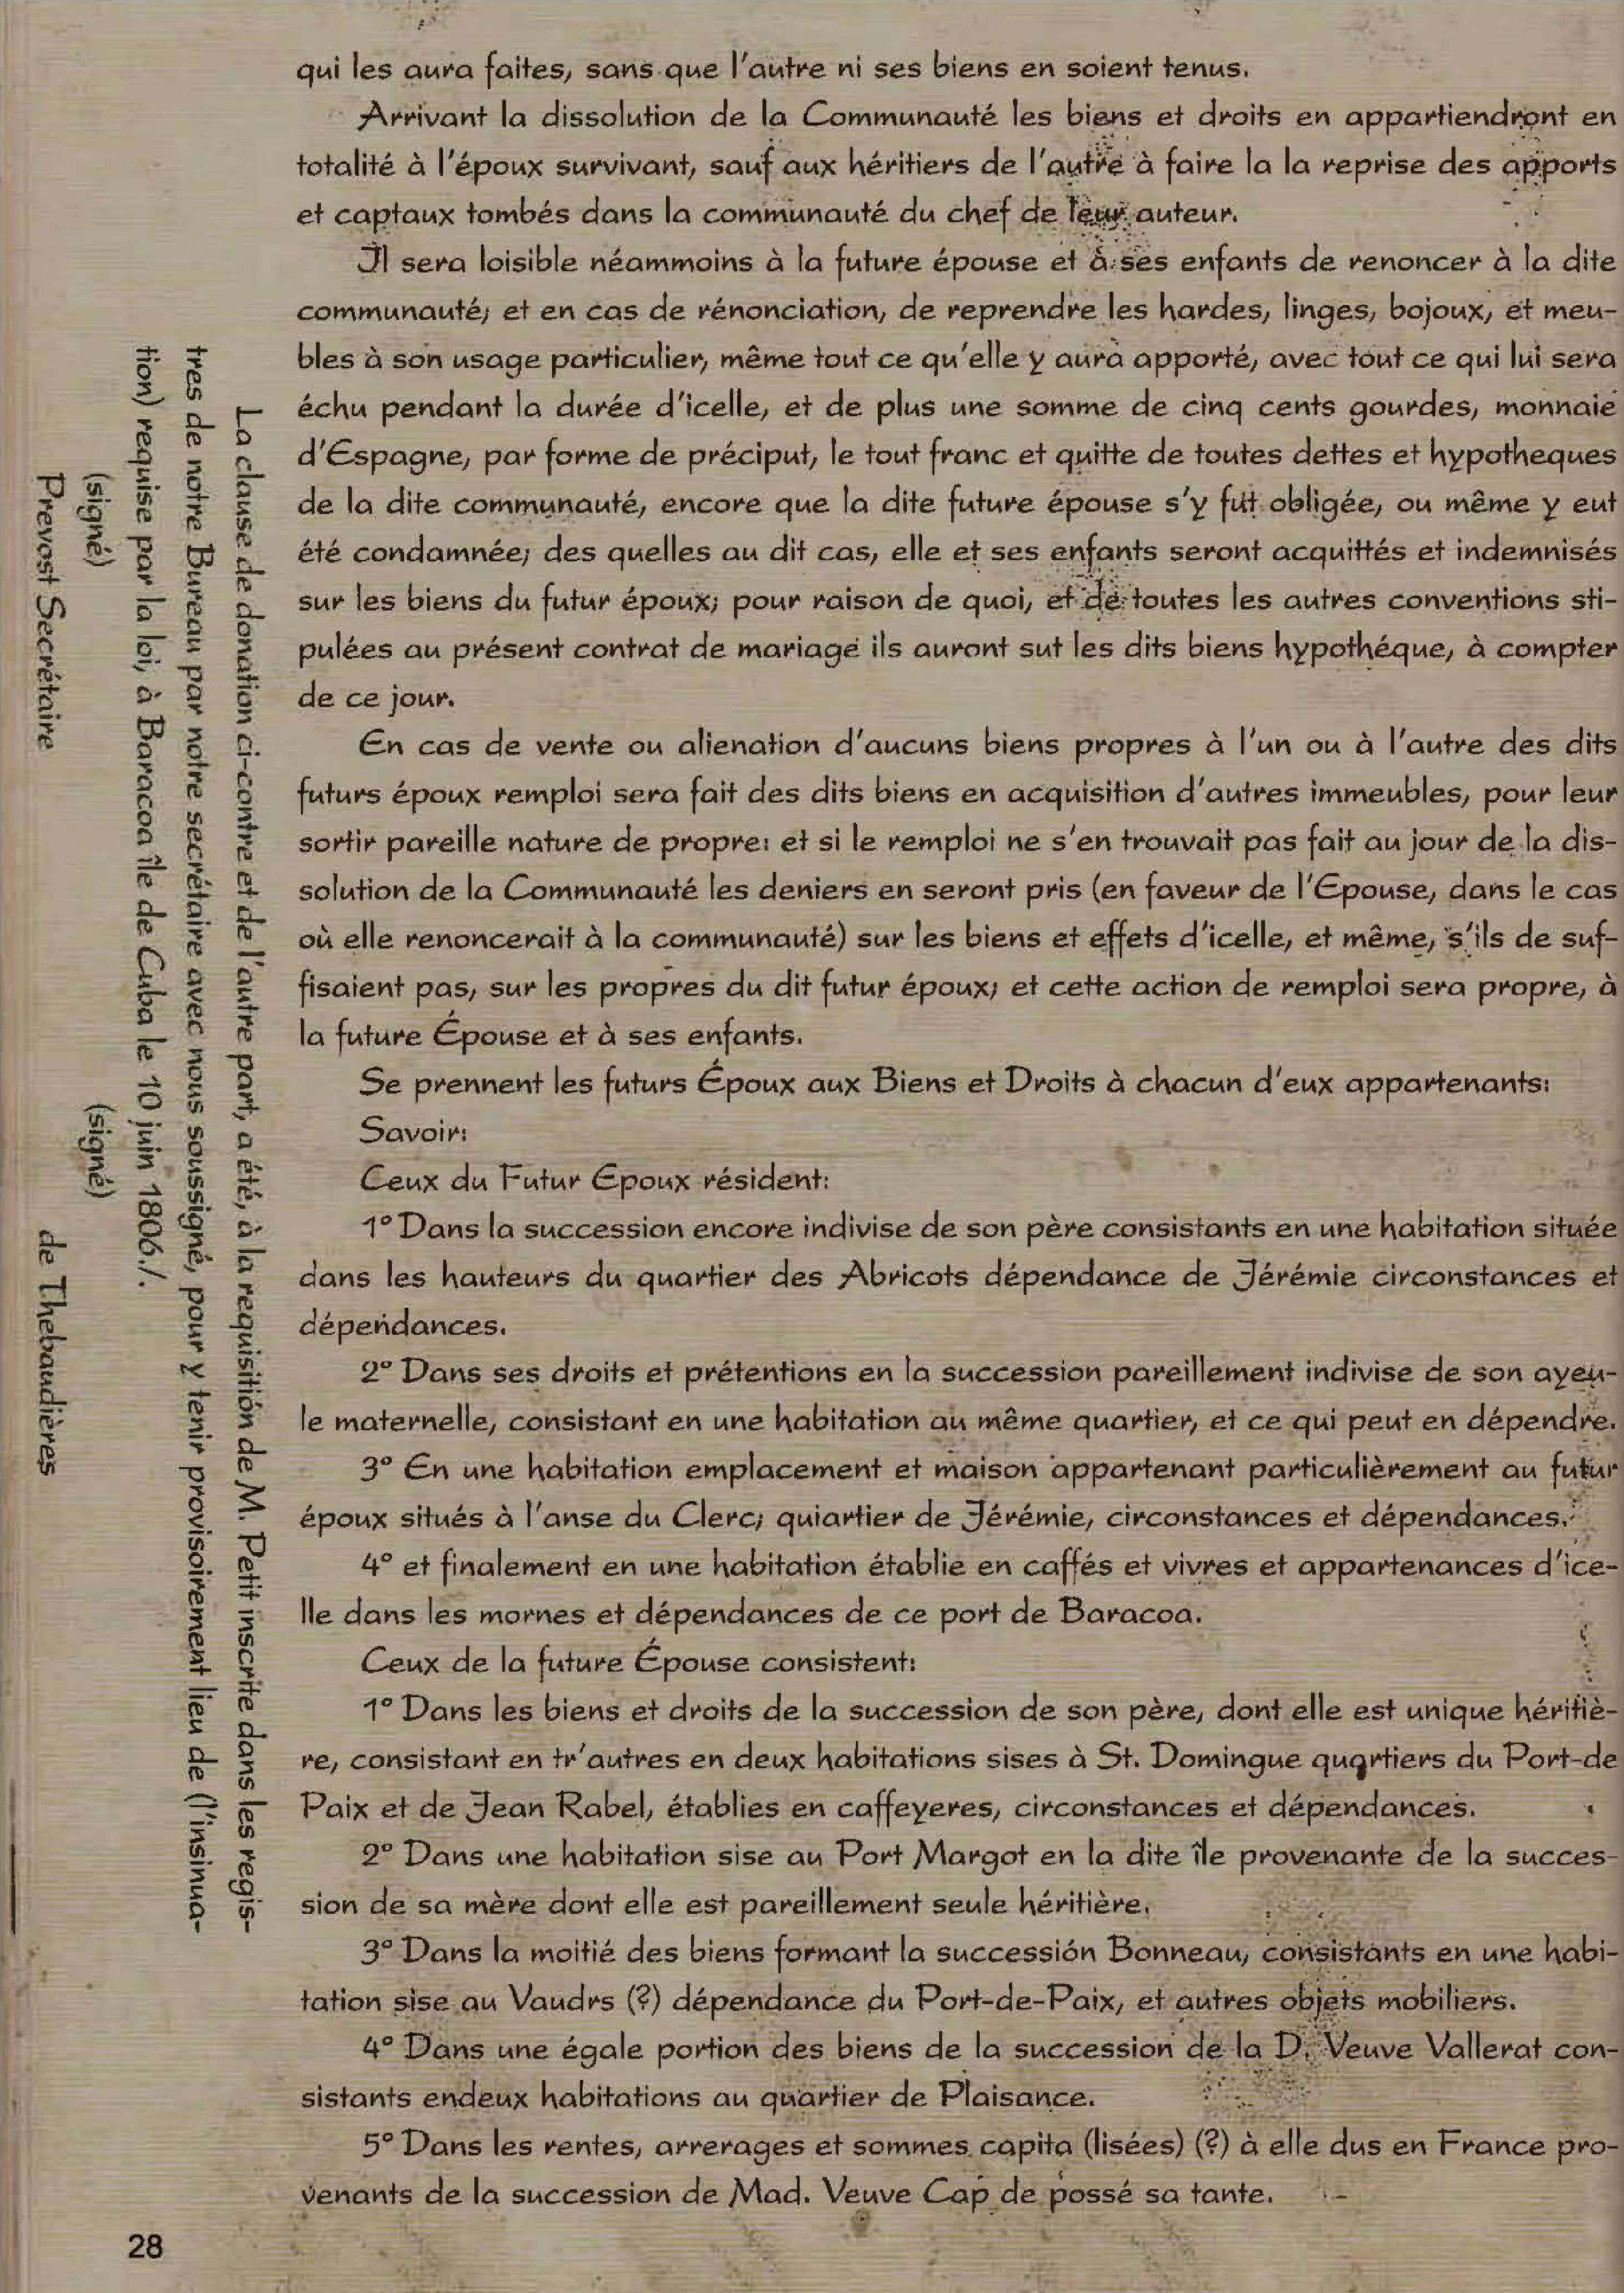 qui les aura faites, sans que l'autre ni ses biens en soient tenus.
Arrivant la dissolution de la Communauté les biens et droits en appartiendront en
totalité à l'époux survivant, sauf aux héritiers de l'autre à faire la la reprise des apports
et captaux tombés dans la communauté du chef de leur auteur.
Il sera loisible néammoins à la future épouse et à ses enfants de renoncer à la dite
communauté; et en cas de rénonciation, de reprendre les hardes, linges, bojoux, et meu-
bles à son usage particulier, même tout ce qu'elle y aura apporté, avec tout ce qui lui sera
échu pendant la durée d'icelle, et de plus une somme de cinq cents gourdes, monnaie
d'Espagne, par forme de préciput, le tout franc et quitte de toutes dettes et hypotheques
de la dite communauté, encore que la dite future épouse s'y fût obligée, ou même y eut
été condamnée; des quelles au dit cas, elle et ses enfants seront acquittés et indemnisés
sur les biens du futur époux; pour raison de quoi, et de toutes les autres conventions sti-
pulées au présent contrat de mariage ils auront sut les dits biens hypothéque, à compter
de ce jour.
En cas de vente ou alienation d'aucuns biens propres à l'un ou à l'autre des dits
futurs époux remploi sera fait des dits biens en acquisition d'autres immeubles, pour leur
sortir pareille nature de propre: et si le remploi ne s'en trouvait pas fait au jour de la dis-
solution de la Communauté les deniers en seront pris (en faveur de l'Epouse, dans le cas
où elle renoncerait à la communauté) sur les biens et effets d'icelle, et même, s'ils de suf-
fisaient pas, sur les propres du dit futur époux; et cette action de remploi sera propre, à
la future Épouse et à ses enfants.
Se prennent les futurs Époux aux Biens et Droits à chacun d'eux appartenants:
Savoir:
Ceux du Futur Epoux résident:
1° Dans la succession encore indivise de son père consistants en une habitation située
dans les hauteurs du quartier des Abricots dépendance de Jérémie circonstances et
dépendances.
2° Dans ses droits et prétentions en la succession pareillement indivise de son ayeu-
le maternelle, consistant en une habitation au même quartier, et ce qui peut en dépendre.
3° En une habitation emplacement et maison appartenant particulièrement au futur
époux situés à l'anse du Clerc; quiartier de Jérémie, circonstances et dépendances.
4° et finalement en une habitation établie en caffés et vivres et appartenances d'ice-
lle dans les mornes et dépendances de ce port de Baracoa.
Ceux de la future Épouse consistent:
1° Dans les biens et droits de la succession de son père, dont elle est unique héritiè-
re, consistant en tr'autres en deux habitations sises à St. Domingue quartiers du Port-de
Paix et de Jean Rabel, établies en caffeyeres, circonstances et dépendances.
2° Dans une habitation sise au Port Margot en la dite île provenante de la succes-
sion de sa mère dont elle est pareillement seule héritière.
3° Dans la moitié des biens formant la successión Bonneau, consistants en une habi-
tation sise au Vaudrs (?) dépendance du Port-de-Paix, et autres objets mobiliers.
4° Dans une égale portion des biens de la succession de la D. Veuve Vallerat con-
sistants endeux habitations au quartier de Plaisance.
5° Dans les rentes, arrerages et sommes capita (lisées) (?) à elle dus en France pro-
venants de la succession de Mad. Veuve Cap de possé sa tante.
La clause de donation ci-contre et de l'autre part, a été, à la requisitión de M. Petit inscrite dans les regis-
tres de notre Bureau par notre secrétaire avec nous soussigné, pour y tenir provisoirement lieu de (l'insinua-
tion) requise par la loi, à Baracoa île de Cuba le 10 juin 1806./.
(signé) (signé)
Prevost Secrétaire de Thebaudières
28